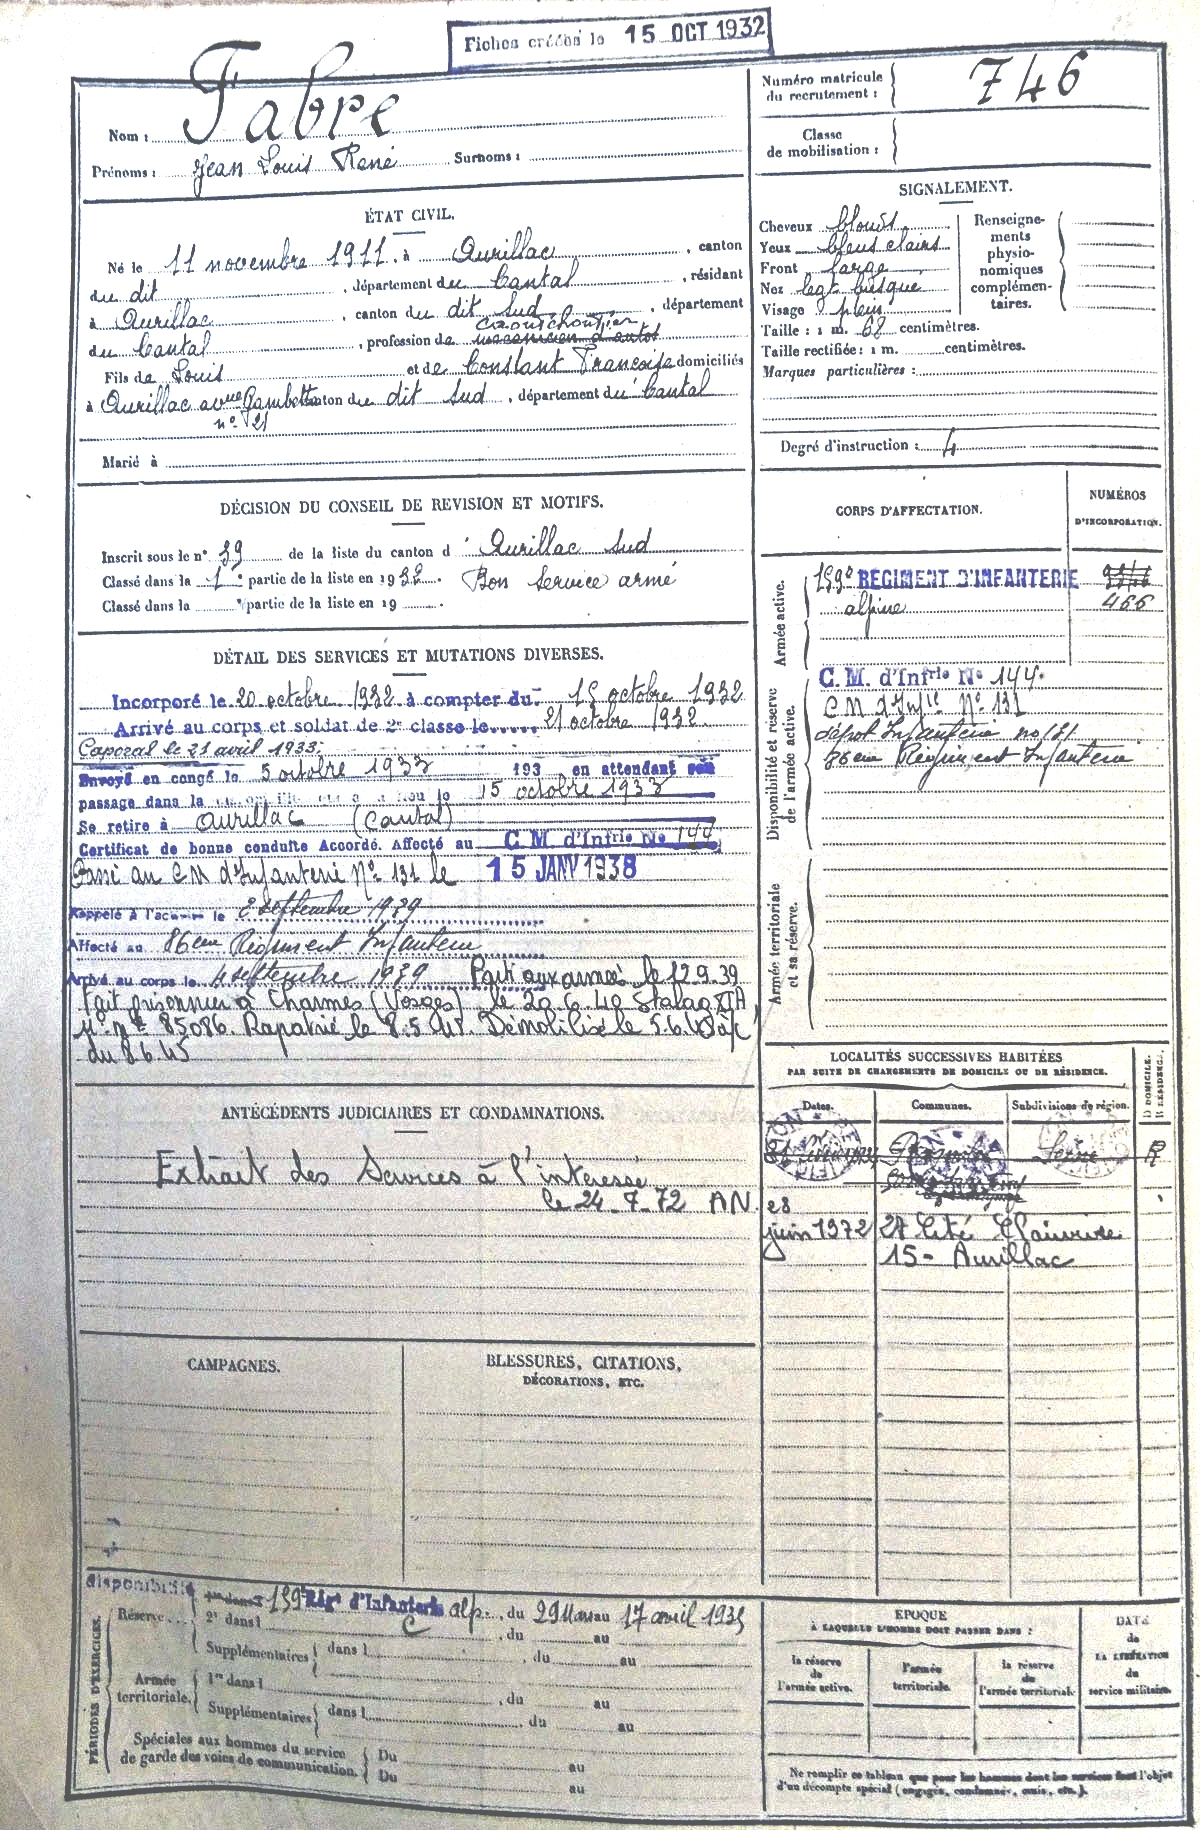 Fiches créées le 15 OCT 1932
Nom : Fabre
Prénoms : Jean Louis René Surnoms :
Numéro matricule du recrutement : 746
Classe de mobilisation :
ÉTAT CIVIL.
Né le 11 novembre 1911. à Aurillac, canton
du dit, département du Cantal, résidant
à Aurillac, canton du dit Sud, département
caoutchoutier
du Cantal, profession de mécanicien d'autos
Fils de Louis et de Constant Françoise domiciliés
à Aurillac avue Gambetta canton du dit Sud, département du Cantal
n° 21
Marié à
SIGNALEMENT.
Cheveux blonds
Yeux bleus clairs
Front large
Nez legt busqué
Visage plein
Taille : 1 m. 68 centimètres.
Taille rectifiée : 1 m. centimètres.
Marques particulières :
Renseignements physionomiques complémentaires.
Degré d'instruction : 4
DÉCISION DU CONSEIL DE REVISION ET MOTIFS.
Inscrit sous le n° 39 de la liste du canton d' Aurillac Sud
Classé dans la 1e partie de la liste en 1932. Bon Service armé
Classé dans la e partie de la liste en 19 .
CORPS D'AFFECTATION.
NUMÉROS D'INCORPORATION.
Armée active.
159e RÉGIMENT D'INFANTERIE
alpine
466
Disponibilité et réserve de l'armée active.
C. M. d'Infrie No 144.
CM d'Infie No 131
dépôt Infanterie no 131
86eme Régiment Infanterie
Armée territoriale et sa réserve.
DÉTAIL DES SERVICES ET MUTATIONS DIVERSES.
Incorporé le 20 octobre 1932 à compter du 15 octobre 1932
Arrivé au corps et soldat de 2e classe le 21 octobre 1932
Caporal le 21 avril 1933.
Envoyé en congé le 5 octobre 1933 193 en attendant son
passage dans la 15 octobre 1933
Se retire à Aurillac (Cantal)
Certificat de bonne conduite Accordé. Affecté au C. M. d'Infrie No 144
Passé au CM d'Infanterie No 131 le 15 JANV 1938
Rappelé à l'activité le 2 septembre 1939
Affecté au 86eme Régiment Infanterie
Arrivé au corps le 4 septembre 1939 Parti aux armées le 12.9.39
Fait prisonnier à Charmes (Vosges) le 20.6.40 Stalag
85086. Rapatrié le 8.5.45. Démobilisé le 5.6.45 à/c
du 8 6 45
LOCALITÉS SUCCESSIVES HABITÉES
PAR SUITE DE CHANGEMENTS DE DOMICILE OU DE RÉSIDENCE.
Dates. Communes. Subdivisions de région. D DOMICILE. R RÉSIDENCE.
Seine R
28 juin 1972 27 Cité Clairvive
15 - Aurillac
ANTÉCÉDENTS JUDICIAIRES ET CONDAMNATIONS.
Extrait des Services à l'intéressé
le 24-7-72 AN
CAMPAGNES.
BLESSURES, CITATIONS,
DÉCORATIONS, ETC.
PÉRIODES D'EXERCICES.
disponibilité
Réserve... 1re dans 159e Régt d'Infanterie alp., du 29 Mars au 17 avril 1935
2e dans l , du au
Supplémentaires dans l , du au
Armée territoriale. 1re dans l , du au
Supplémentaires dans l du au
Spéciales aux hommes du service de garde des voies de communication. Du au
Du au
ÉPOQUE
À LAQUELLE L'HOMME DOIT PASSER DANS :
la réserve de l'armée active.
l'armée territoriale.
la réserve de l'armée territoriale.
DATE de LA LIBÉRATION du service militaire.
Ne remplir ce tableau que pour les hommes dont les services font l'objet
d'un décompte spécial (engagés, condamnés, omis, etc.).